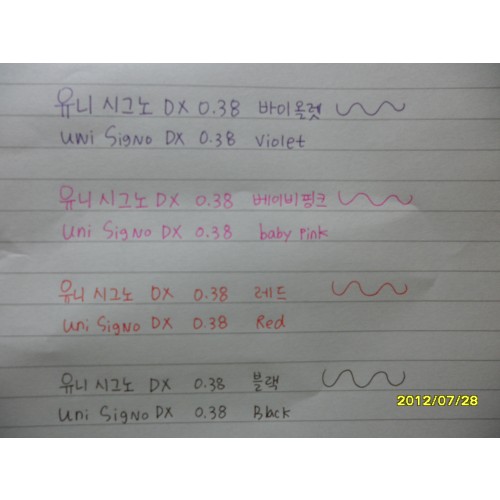 유니 시그노 DX 0.38 바이올렛
uni Signo DX 0.38 Violet
유니 시그노 DX 0.38 베이비핑크
uni Signo DX 0.38 baby pink
유니 시그노 DX 0.38 레드
uni Signo DX 0.38 Red
유니 시그노 DX 0.38 블랙
uni Signo DX 0.38 Black
2012/07/28